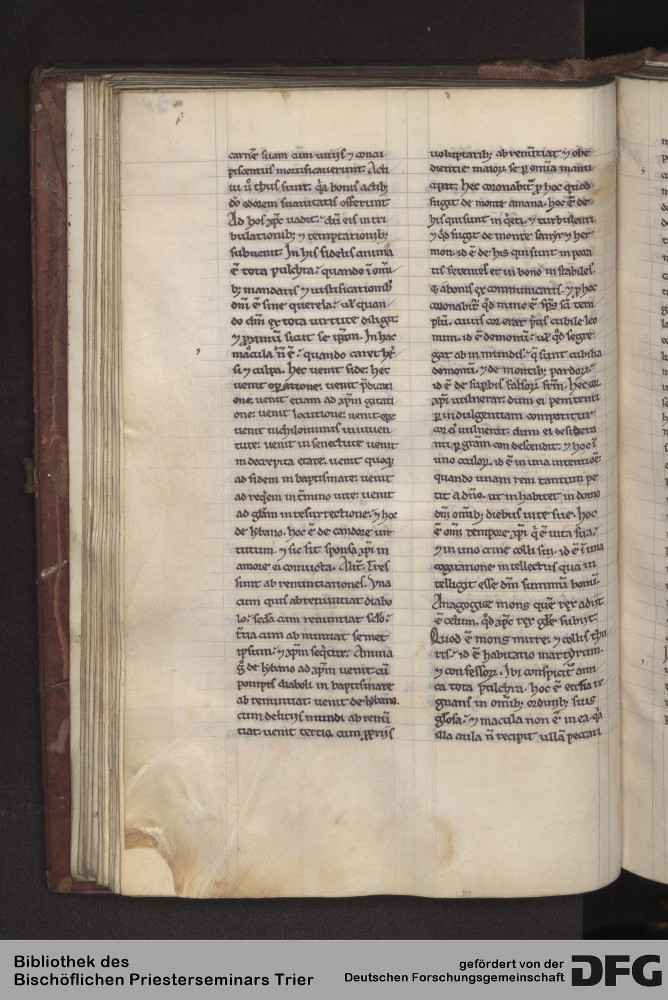 carnē suam cum uitijs ⁊ concu
piscentijs mortificauerunt. Acti
ui ů thus sunt. q̇a bonis actib;
dō odorem suauitatis offerunt
Ad hos xp̄c uadit. cū eis in tri
bulationib; ⁊ temptationib;
subuenit. In his fidelis anima
ē tota pulchra. quando ī omī
b; mandatis ⁊ iustificationib;
dn̄i ē sine querela. uł quan
do dm̄ ex tota uirtute diligit.
⁊ ꝓximū sicut se ip̄m. In hac
macula n̄ ē. quando caret
si ⁊ culpa. Hec uenit fide. hec
uenit oꝑatione. uenit p̄dicati
one. uenit etiam ad xp̄m
one. uenit locutione. uenit
uenit nichilominus iuuuen
tute. uenit in senectute uenit
in decrepita etate. uenit quoq;
ad fidem in baptismate. uenit
ad reqē̇m in t̄mino uite. uenit
ad głam in resurrectione. ⁊ hoc
de lybano. hoc ē de candore uir
tutum. ⁊ sic fit sponsa xp̄i in
amore ei coniuncta. Alit̄. Tres
sunt abrenuntiationes. Vna
cum quis abrenuntiat diabo
lo. scd̄a cum renuntiat sclo.
t̄tia cum abnuntiat semet
ipsum. ⁊ xp̄m seq̇tur. Anima
g̊ de lybano ad xp̄m uenit. cū
pompis diaboli in baptismate
abrenuntiat. uenit de lybano.
cum delitijs mundi abrenū
tiat. uenit tertio. cum ꝓprijs
uoluptatib; abrenūtiat ⁊ obe
dientie maiorꝝ se ꝑ omīa manci
pat. hec coronabit᷑ ꝑ hoc quod
fugit de monte amana. hoc ē de
his qui sunt in q̇eti. ⁊ turbulenti.
⁊ qd̄ fugit de monte sanyr ⁊ her
mon. id ē de his qui sunt in
tis fetentes et in bono instabiles.
⁊ a bonis excommunicati. ⁊ ꝑ hoc
coronabit᷑ qd̄ nunc ē sp̄s sc̄i tem
plū. cuius cor erat prius cubile leo
num. id ē demonū. uł qd̄ segre
gat᷑ ab inmundis. q̇ sunt cubilia
demonū. ⁊ de montib; pardorꝝ.
id ē de suꝑbis falsorꝝ frm̄. Hec cor
xp̄i uulnerat. dum ei penitenti
ꝑ indulgentiam compatitur
cor ei uulnerat. dum ei desidera
nti ꝑ gr̄am condescendit. ⁊ hoc ī
uno oculorꝝ. id ē in una intentiōe.
quando unam rem tantum pe
tit a dn̄o. ut inhabitet in domo
dn̄i omīb; diebus uite sue. hoc
ē om̄i tempore xp̄i q̇ ē uita sua.
⁊ in uno crine colli sui. id ē ī una
cogitatione intellectus qua in
telligit esse dm̄ summū bonū.
Anagogice mons quē rex adijt
ē celum. qd̄ xp̄c rex głe subijt.
Quod ē mons mirre. ⁊ collis thu
ris. id ē habitatio martyrum.
⁊ confessorꝝ. Ibi conspicit᷑ ami
ca tota pulchra. hoc ē ecc̄lia re
gnans in omīb; ordinib; suis
głosa. ⁊ macula non ē in ea. q̇a
illa aula n̄ recipit ullā peccati
Bibliothek des
Bischöflichen Priesterseminars Trier
gefördert von der
Deutschen Forschungsgemeinschaft
DFG